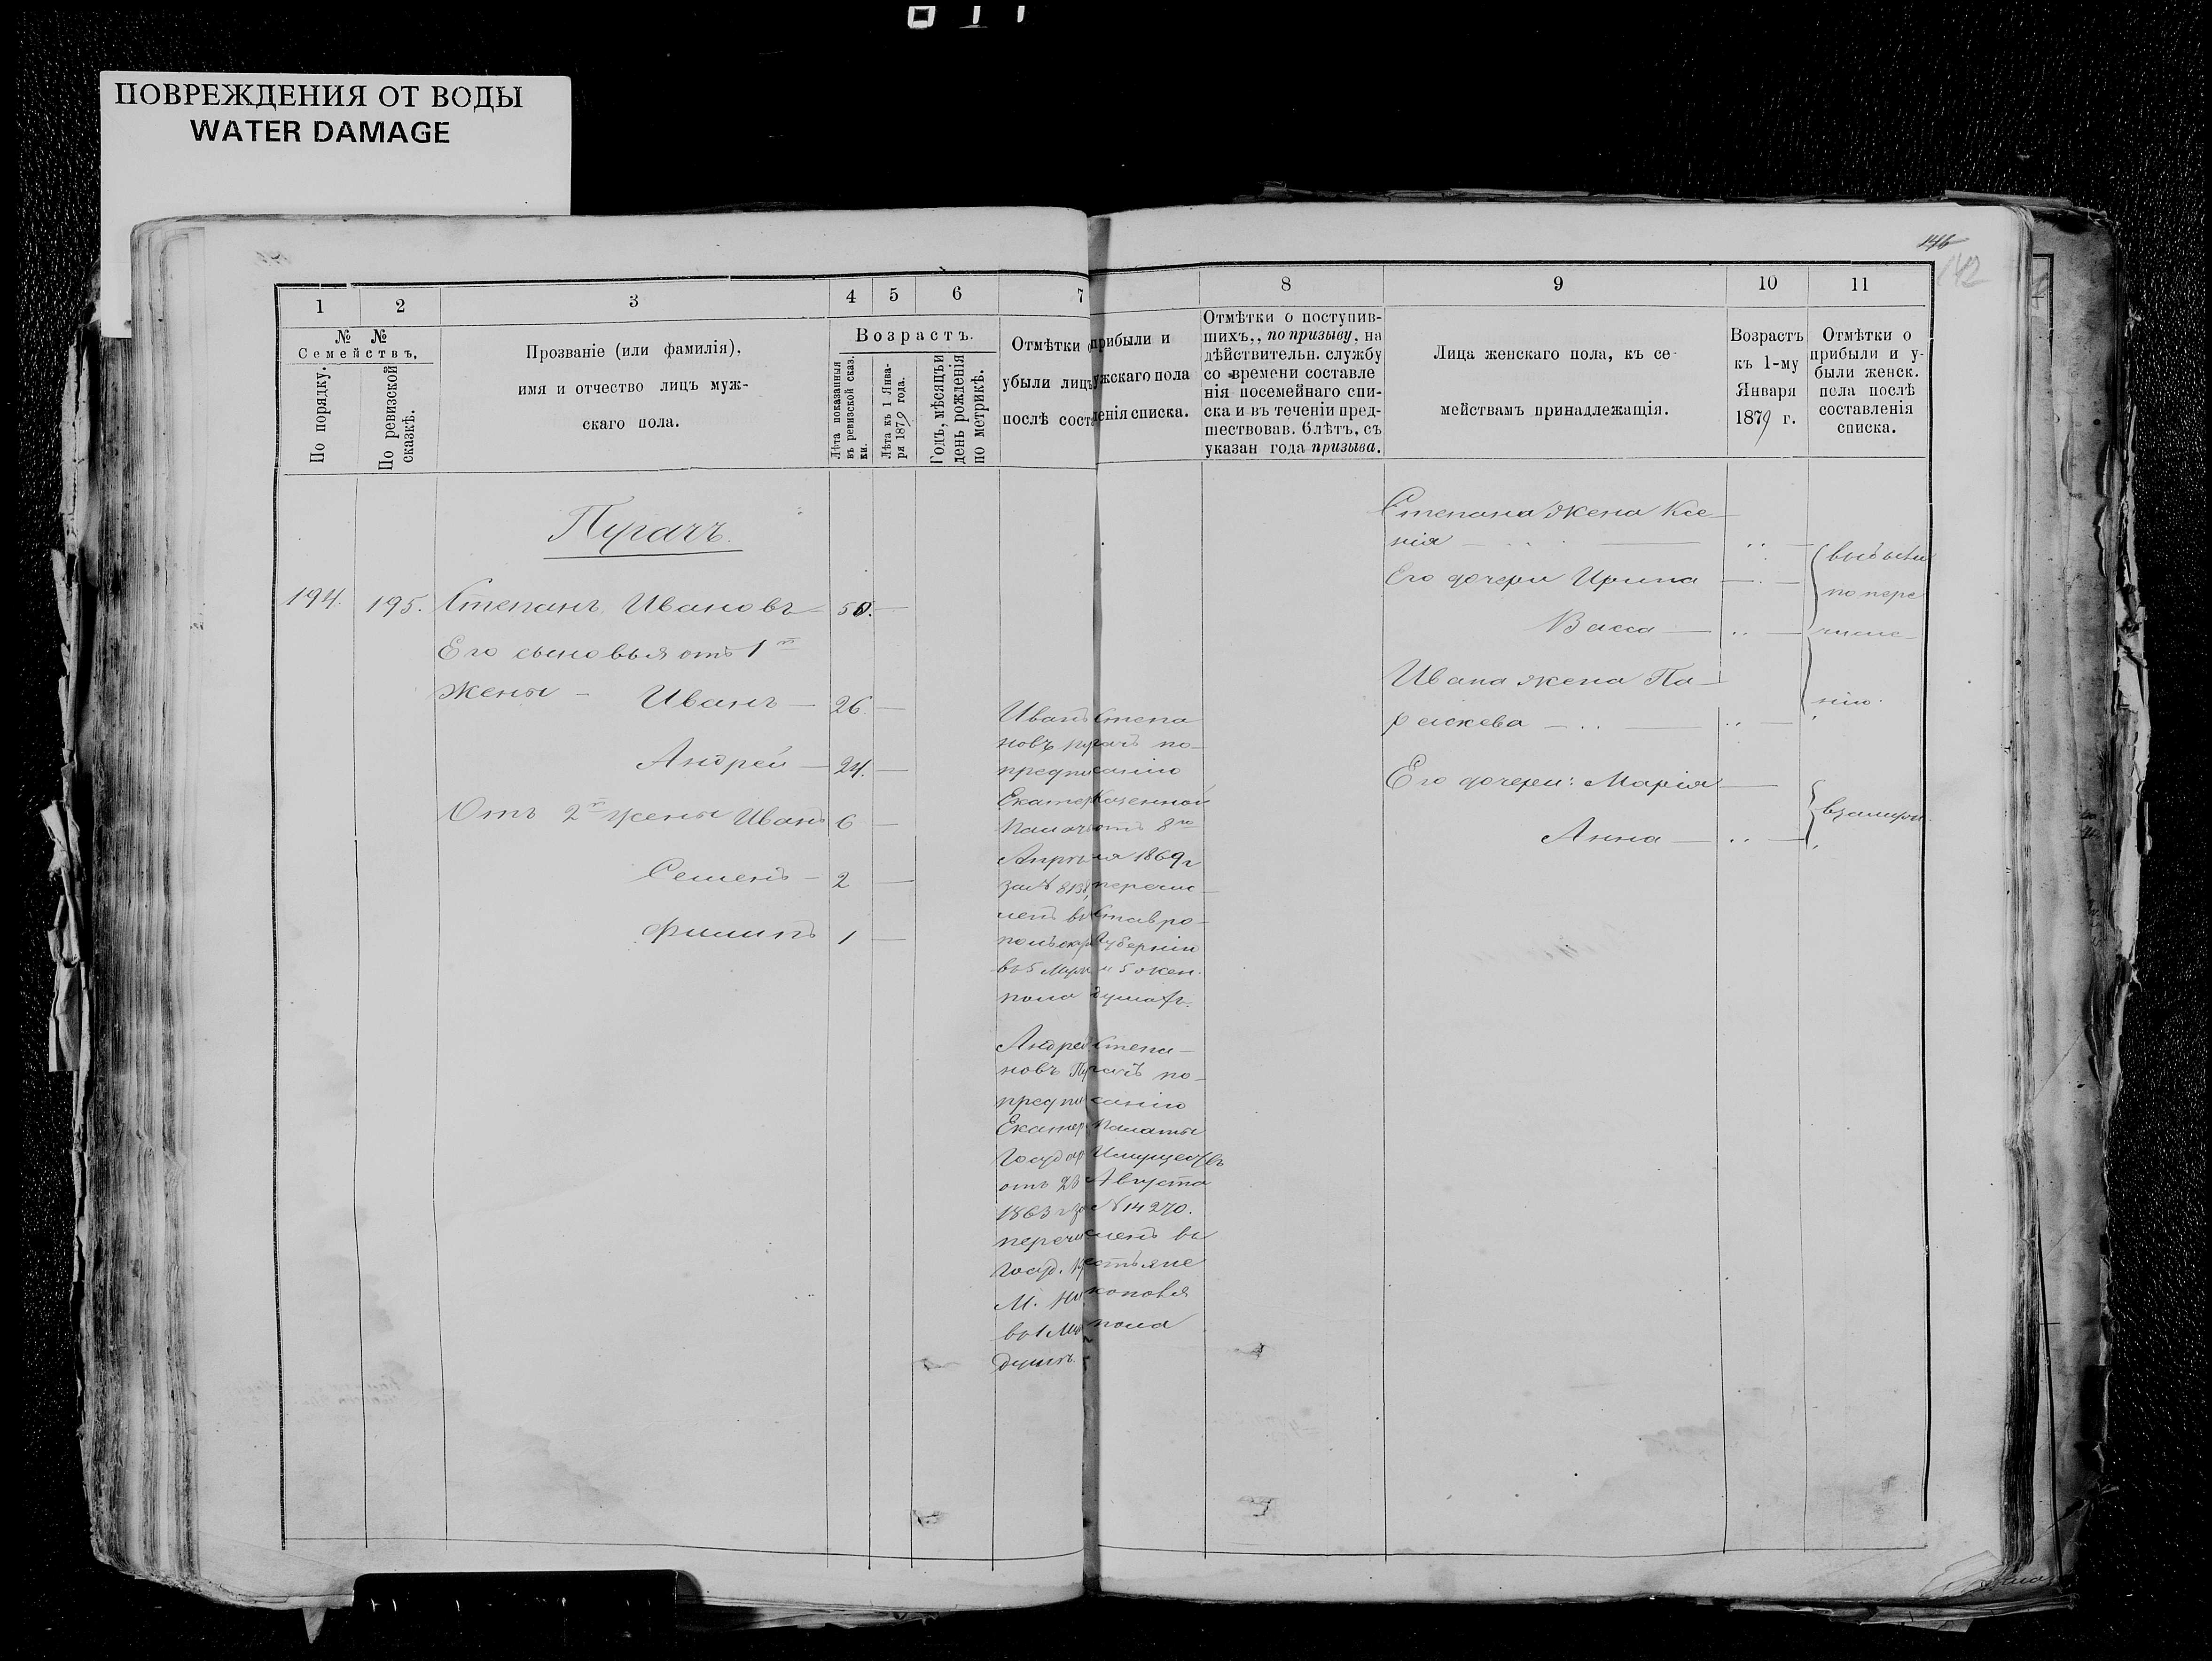 ПОВРЕЖДЕНИЯ ОТ ВОДЫ
WATER DAMAGE
146
142
1
2
3
4
5
6
7
8
9
10
11
№ №
Семействъ,
По порядку.
По ревизской сказкѣ.
Прозваніе (или фамилія),
имя и отчество лицъ муж-
скаго пола.
Возрастъ.
Лѣта показанныя въ ревизской сказ. ки.
Лѣта къ 1 Янва- ря 1879 года.
Годъ, мѣсяцъ и день рожденія по метрикѣ.
Отмѣтки о прибыли и
убыли лицъ мужскаго пола
послѣ составленія списка.
Отмѣтки о поступив-
шихъ,, по призыву, на
дѣйствительн. службу
со времени составле
нія посемейнаго спи-
ска и въ теченіи пред-
шествовав. 6 лѣтъ, съ
указан года призыва.
Лица женскаго пола, къ се-
мействамъ принадлежащія.
Возрастъ
къ 1-му
Января
1879 г.
Отмѣтки о
прибыли и у-
были женск.
пола послѣ
составленія
списка.
Пугачъ.
194. 195. Степанъ Ивановъ 50.
Его сыновья отъ 1й
жены - Иванъ - 26.
Андрей - 24.
Отъ 2й жены Иванъ 6
Семенъ - 2
Филипъ 1
Иванъ Степа
новъ Пугачъ по-
предписанію
Екатер Казенной
Палаты отъ 8го
Апрѣля 1869 г
за № 8138, перечис-
ленъ въ Ставро-
польскую Губернію
въ 5 Муж и 5 жен.
пола душахъ.
Андрей Степа-
новъ Пугачъ по-
предписанію
Екатер. Палаты
Государ Имуществъ
отъ 20 Августа
1863 г за № 14270.
перечисленъ въ
Госуд. Крестьяне
М.
въ 1 Муж пола
душѣ.
Степана жена Ксе-
нія
Его дочери Ирина
Васса
Ивана жена Па-
раскева
Его дочери: Марія
Анна
выбыли
по пере
числе-
нію.
взамуж.